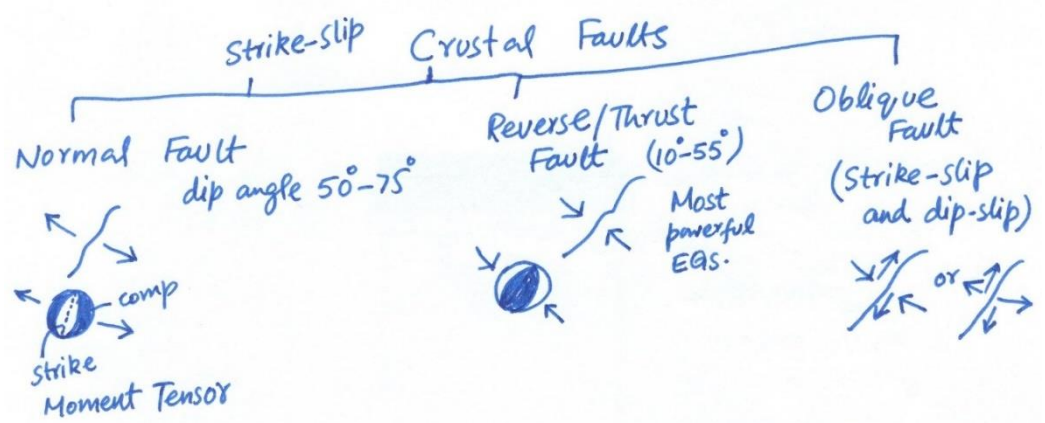 Strike-slip Crustal Faults
Normal Fault
dip angle 50°-75°
comp
strike
Moment Tensor
Reverse/Thrust
Fault (10°-55°)
Most
powerful
EQs.
Oblique
Fault
(Strike-slip
and dip-slip)
or